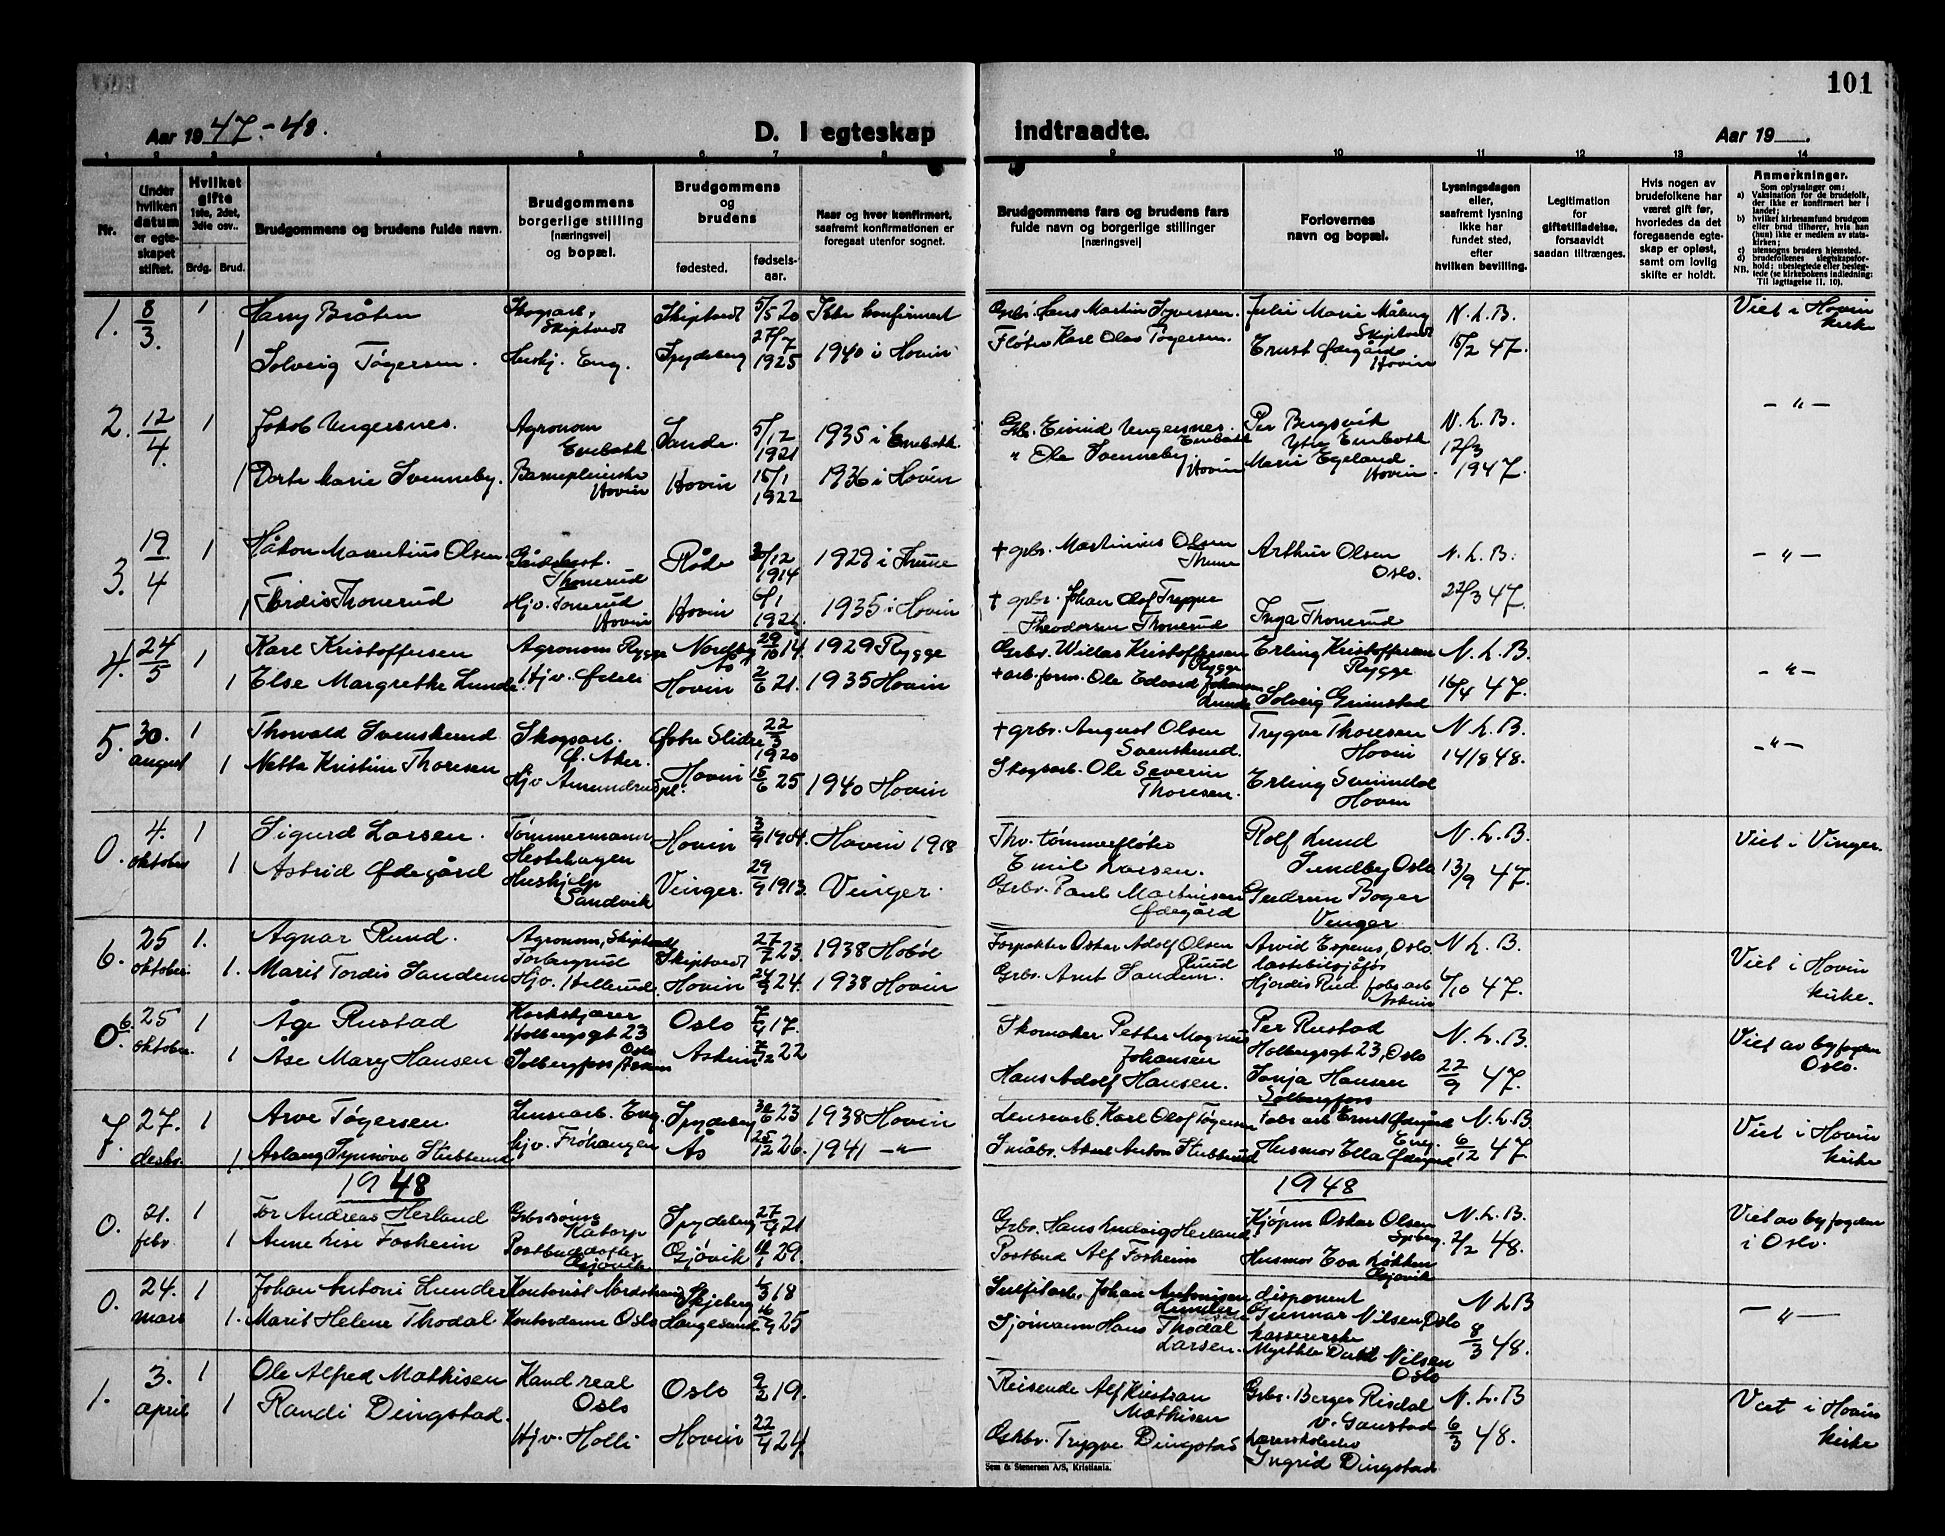 101
Aar 1947-48.
D. I egteskap indtraadte.
Aar 19 .
1 2 3 4 5 6 7 8 9 10 11 12 13 14
Nr.
Under hvilken datum er egteskapet stiftet.
Hvilket gifte 1ste, 2det, 3die osv..
Brdg. Brud.
Brudgommens og brudens fulde navn.
Brudgommens borgerlige stilling [næringsvei] og bopæl.
Brudgommens og brudens
fødested.
fødsels-aar.
Naar og hvor konfirmert, saafremt konfirmationen er foregaat utenfor sognet.
Brudgommens fars og brudens fars fulde navn og borgerlige stillinger [næringsvei]
Forlovernes navn og bopæl.
Lysningsdagen eller, saafremt lysning ikke har fundet sted, efter hvilken bevilling.
Legitimation for giftetilladelse, forsaavidt saadan tiltrænges.
Hvis nogen av brudefolkene har været gift før, hvorledes da det foregaaende egteskap er opløst, samt om lovlig skifte er holdt.
Anmerkninger.
Som oplysninger om:
a) Vaksination for de brudefolk, der ikke er konfirmert her i landet;
b) hvilket kirkesamfund brudgom eller brud tilhører, hvis han (hun) ikke er medlem av statskirken;
c) utensogns bruders hjemsted.
d) brudefolkenes slegtskapsforhold: ubeslegtede eller beslegtede (se kirkebokens indledning:
NB. Til iagttagelse II. 10).
1. 8/3. 1 Harry Bråten Skogsarb. Skiptvedt Skiptvedt 5/5 20 Ikke konfirmert Grb. Hans Martin Syversen. Julie Marie Måberg Skiptvedt N.L.B. Viet i Hovin kirke
1 Solveig Tøgersen. Hushj. Eng. Spydeberg 27/7 1925 1940 i Hovin Fløter Karl Olav Tøgersen. Ernst Ødegård Hovin 15/2 47.
2. 12/4. 1 Jakob Ungersnes. Agronom Enebakk Sande. 5/12 1921 1935 i Enebakk. Grb. Eivind Ungersnes. Enebakk Per Bergsvik Ytre Enebakk N.L.B. – " –
1 Dorte Marie Svenneby. Barnepleierske Hovin Hovin 15/1 1922 1936 i Hovin " Ole Svenneby. Hovin Marie Egeland Hovin. 12/3 1947.
3. 19/4 1 Håkon Mauritius Olsen Gårdsbest. Thonerud Råde 1914 1929 i Thune + grbr. Martinius Olsen Thune Arthur Olsen Oslo. N.L.B. – " –
1 Tordis Thonerud Hjv. Tonerud Hovin Hovin 6/1 1921 1935 i Hovin + grbr. Johan Olof Trygve Theodorsen Thonerud Inga Thonerud 22/3 47.
4. 24/5 1 Karl Kristoffersen Agronom Rygge Nordby Ås 29/10 14. 1929 Rygge Grbr. Willas Kristoffersen Rygge Erling Kristoffersen Rygge N.L.B. – " –
1 Else Margrethe Lunde. Hjv. Hovin 2/6 21. 1935 Hovin + arb.form. Ole Edvard Johansen Lunde Solveig Grimstad 16/4 47.
5. 30. august 1 Thorvald Svenskerud Skogsarb. Ø. Aker. Østre Slidre 22/3 1920 + grbr. August Olsen Svenskerud. Trygve Thoresen Hovin N.L.B. 14/8 48. – " –
1 Netta Kristine Thoresen Hjv Amundrud pl. Hovin 15/6 25 1940 Hovin Skogsarb. Ole Severin Thoresen. Erling Hoven
0. 4. oktober 1 Sigurd Larsen. Tømmermann Hestehagen Hovin 3/9 1904. Hovin 1918 Thv. tømmerfløter Emil Larsen. Rolf Lund Sundby Oslo N.L.B. 13/9 47. Viet i Vinger.
1 Astrid Ødegård Hushjelp Sandvik Vinger. 29/9 1913. Vinger. Grbr. Paul Martinsen Ødegård Gudrun Boger Vinger
6. 25 oktober 1. Agnar Ruud. Agronom, Skiptvedt Torbergrud Skiptvedt 27/7 23. 1938 Hobøl Forpakter Oskar Adolf Olsen Ruud Arvid Espenes, Oslo. lastebilsjåfør N.L.B. Viet i Hovin kirke.
1. Marit Tordis Sandem Hjv. Hellerud. Hovin 24/9 24. 1938 Hovin Grbr. Arnt Sandem. Hjørdis Rud. fabr.arb Askim 6/10 47.
0. 6. 25 oktober. 1 Åge Rustad Korkskjærer Holbergsgt 23 Oslo Oslo 7/9 17. Skomaker Petter Magnus Johansen Per Rustad Holbergsgt 23, Oslo N.L.B. 22/9 47. Viet av byfogden Oslo.
1 Åse Mary Hansen Solbergfoss/Askim Askim 7/12 22 Hans Adolf Hansen. Sonja Hansen Solbergfoss
7. 27. desbr. 1 Arve Tøgersen Lensearb. Eng. Spydeberg 30/6 23 1938 Hovin Lensearb. Karl Olof Tøgersen Fabr arb Ernst Ødegård Eng. N.L.B. Viet i Hovin kirke
1. Aslaug Synnøve Stubberud Hjv. Frøhaugen Ås 25/12 26. 1941 – " – Småbr. Aksel Anton Stubberud Husmor Ella Ødegård 6/12 47
1948 1948
0. 21. febr 1 Tor Andreas Herland Grbr.sønn Kåtorp Spydeberg 27/9 21 Grbr. Hans Ludvig Herland Kjøpm Oskar Olsen Spberg. N.L.B. 2/2 48. Viet av byfogden i Oslo.
1 Anne Lise Fosheim Postbuddatter Gjøvik Gjøvik 29. Postbud Alf Fosheim Husmor Eva Løkken Gjøvik
0. 24. mars 1 Johan Antoni Lunder Kontorist Nordstrand Skjeberg 1/3 18 Sulfitarb. Johan Antonisen Lunder disponent Gunnar Nilsen, Oslo N.L.B – " –
1. Marit Helene Thodal Kontordame Oslo Haugesund 16/9 25 Sjømann Hans Thodal Larsen. kassererske Myrthle Nilsen Oslo 8/3 48.
1. 3. april 1 Ole Alfred Mathisen Kand real Oslo Oslo 9/2 19. Reisende Alf Kristian Mathisen Grbr. Berger Risdal v. Gaustad N.L.B 6/3 48. Viet i Hovin kirke
1 Randi Dingstad. Hjv. Holli Hovin 22/9 24 Grbr. Trygve Dingstad Ingrid Dingstad
Sem & Stenersen A/S, Kristiania.